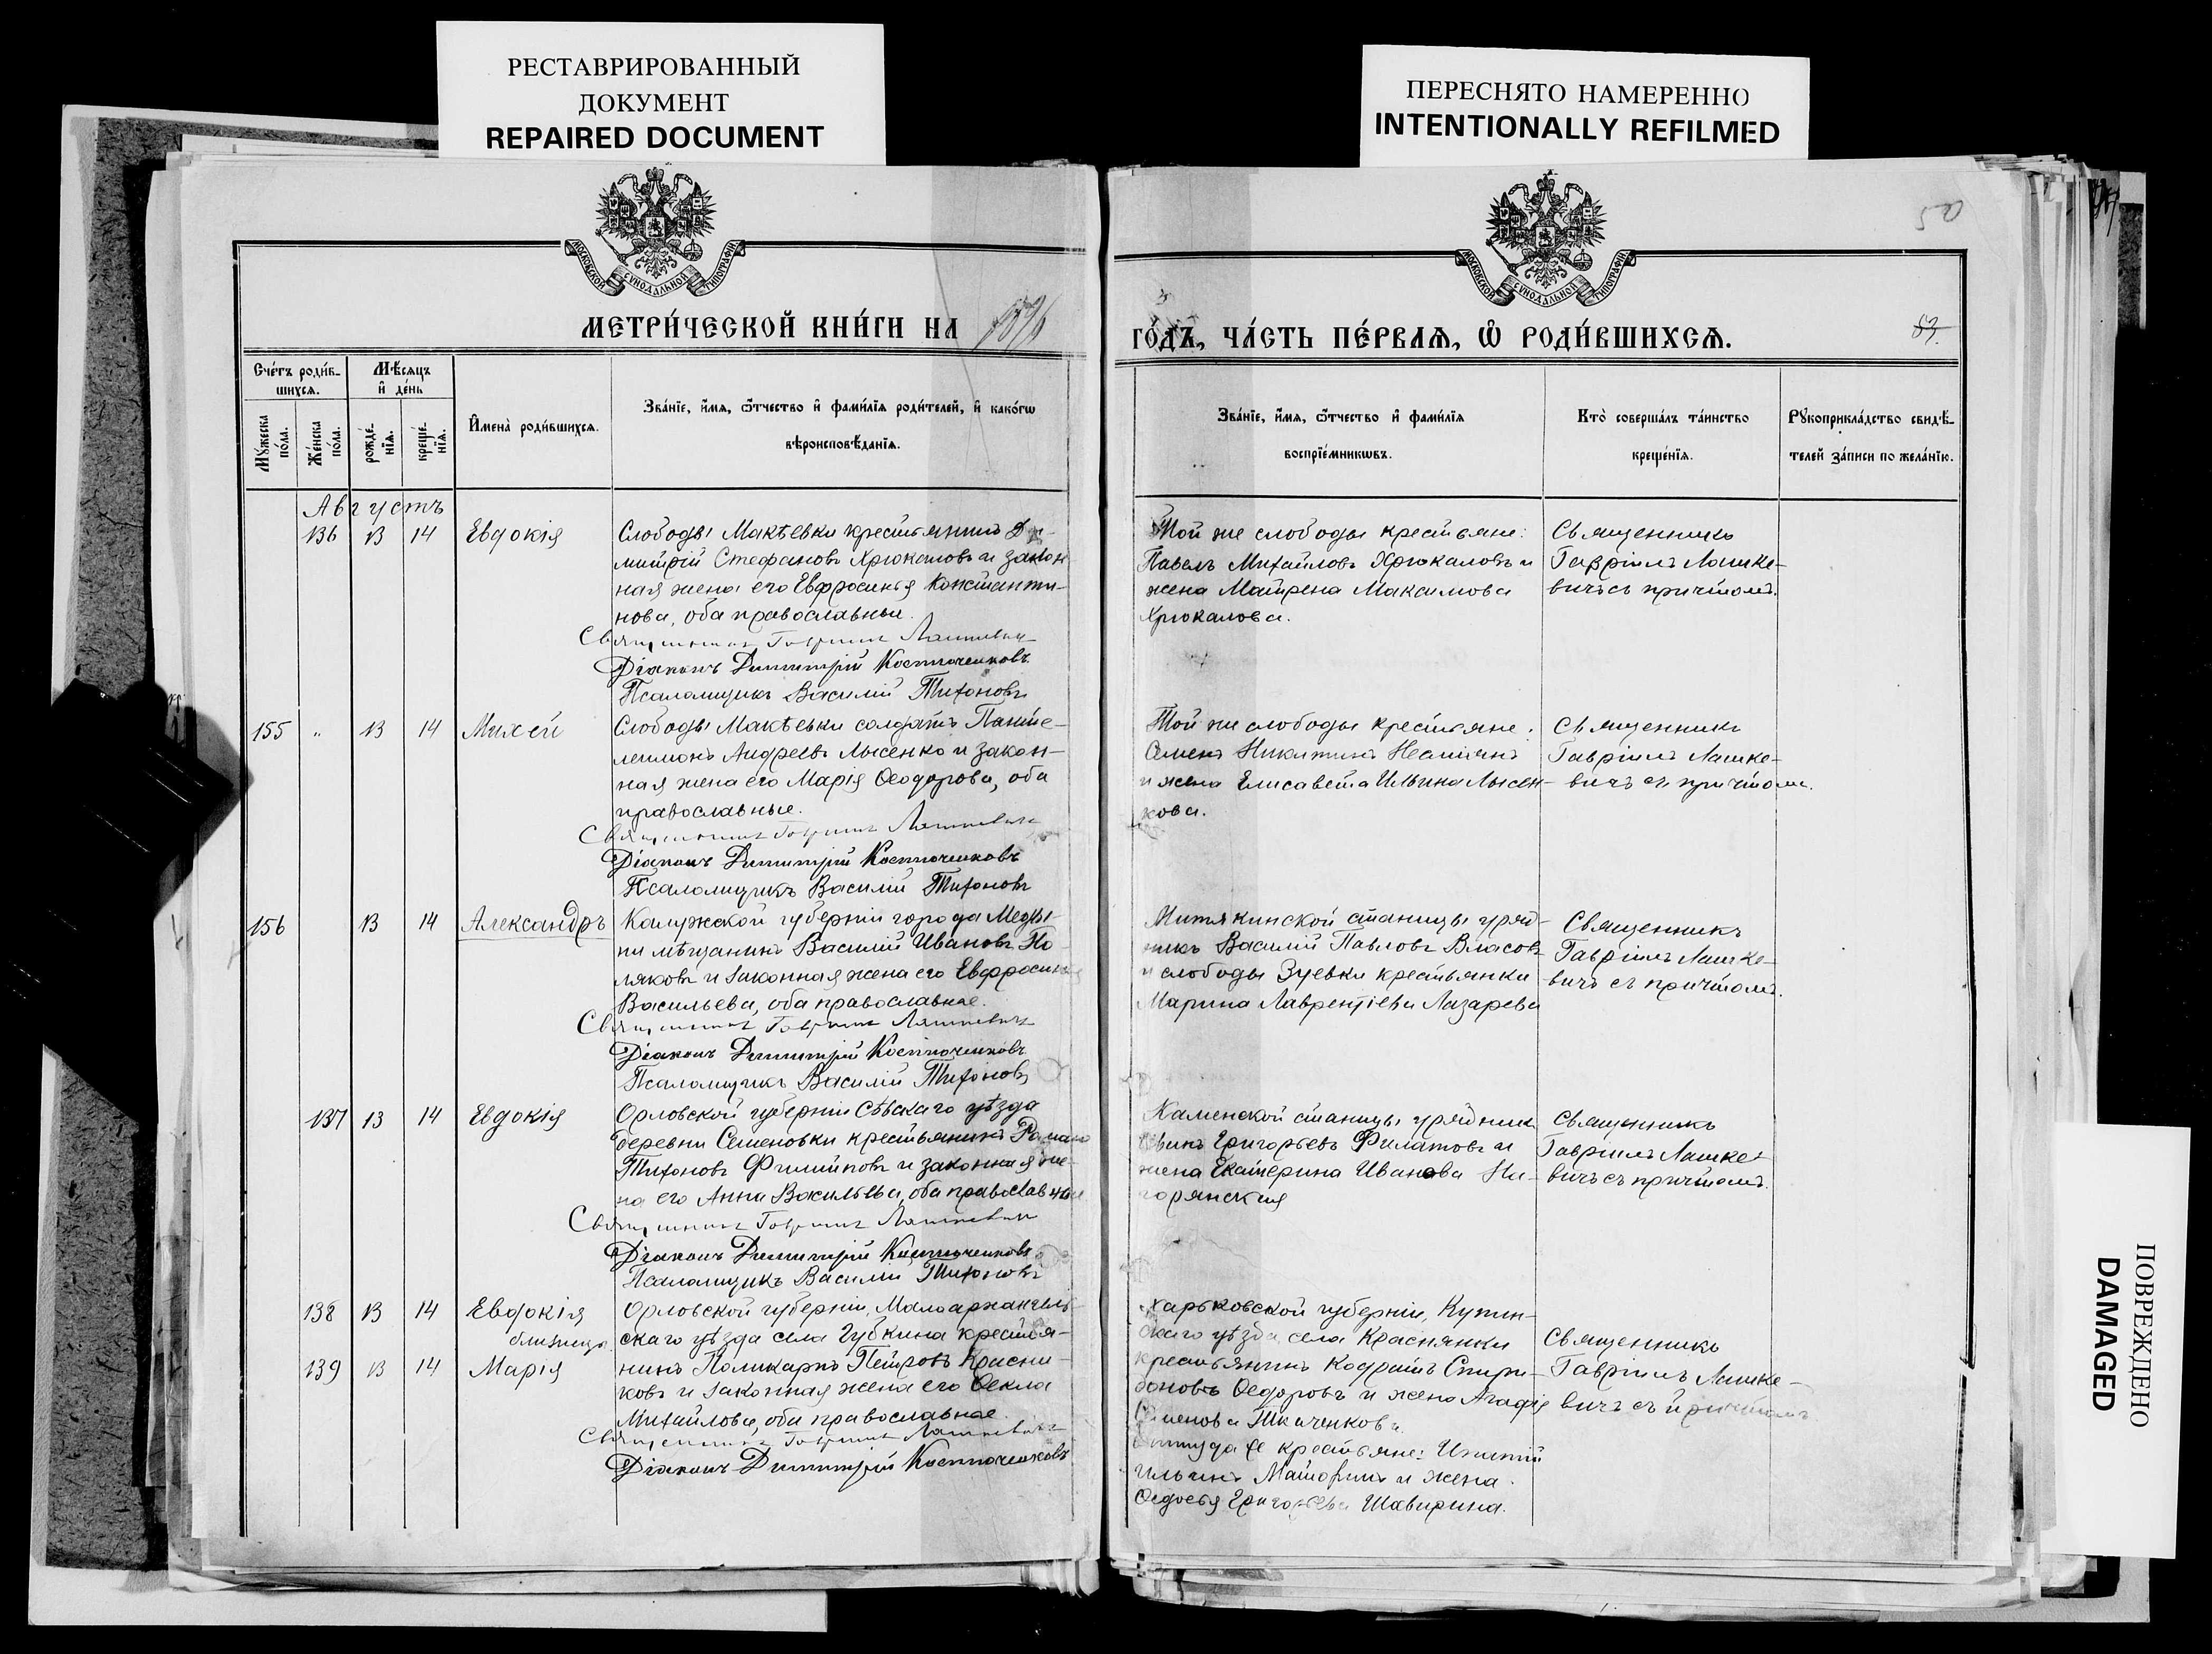 РЕСТАВРИРОВАННЫЙ
ДОКУМЕНТ
REPAIRED DOCUMENT
ПЕРЕСНЯТО НАМЕРЕННО
INTENTIONALLY REFILMED
МОСКОВСКОЙ СѴНОДАЛЬНОЙ ТИПОГРАФІИ
МОСКОВСКОЙ СѴНОДАЛЬНОЙ ТИПОГРАФІИ
МЕТРИ́ЧЕСКОЙ КНИ́ГИ НА 1896
ГО́ДЪ, ЧА́СТЬ ПЕ́РВАЯ, Ѿ РОДИ́ВШИХСЯ.
Сче́тъ роди́в-
шихся.
Мѣ́сяцъ
и҆ де́нь
Мꙋ́жеска
по́ла.
Же́нска
по́ла.
рожде́-
нїя.
креще́-
нїя.
И҆мена̀ роди́вшихся.
Зва́нїе, и҆́мя, ѻ҆́тчество и҆ фами́лїя роди́телей, и҆ како́гѡ
вѣроисповѣ́данїя.
Зва́нїе, и҆́мя, ѻ҆́тчество и҆ фами́лїя
воспрїе́мникѡвъ.
Кто̀ соверша́лъ та́инство
креще́нїя.
Рꙋкоприкла́дство свидѣ́-
телей за́писи по жела́нїю.
Августъ
136 13 14 Евдокія
Слободы Макѣевки крестьянинъ Ди-
митрій Стефановъ Хрюкаловъ и закон
ная жена его Евфросинья Константи-
нова, оба православные.
Священникъ Гавріилъ Лашкевичъ
Діаконъ Димитрій Костюченковъ
Псаломщикъ Василій Тихоновъ
Той же слободы крестьяне:
Павелъ Михайловъ Хрюкаловъ и
жена Матрена Максимова
Хрюкалова.
Священникъ
Гавріилъ Лашке-
вичъ съ причтомъ.
155 " 13 14 Михей
Слободы Макѣевки солдатъ Панте-
леимонъ Андреевъ Лысенко и закон-
ная жена его Марія Ѳеодорова, оба
православные.
Священникъ Гавріилъ Лашкевичъ
Діаконъ Димитрій Костюченковъ
Псаломщикъ Василій Тихоновъ
Той же слободы крестьяне:
Семенъ Никитинъ
и жена Елисавета Ильина Лысен-
кова.
Священникъ
Гавріилъ Лашке-
вичъ съ причтомъ.
156 13 14 Александръ
Калужской губерніи города Меды-
ни мѣщанинъ Василій Ивановъ По-
ляковъ и законная жена его Евфросинья
Васильева, оба православные.
Священникъ Гавріилъ Лашкевичъ
Діаконъ Димитрій Костюченковъ
Псаломщикъ Василій Тихоновъ
Митякинской станицы уряд-
никъ Василій Павловъ Власовъ
и слободы Зуевки крестьянка
Марина Лаврентіева Лазарева
Священникъ
Гавріилъ Лашке-
вичъ съ причтомъ.
137 13 14 Евдокія
Орловской губерніи Сѣвскаго уѣзда
деревни Семеновки крестьянинъ Романъ
Тихоновъ Филиповъ и законная же-
на его Анна Васильева, оба православные
Священникъ Гавріилъ Лашкевичъ
Діаконъ Димитрій Костюченковъ
Псаломщикъ Василій Тихоновъ
Каменской станицы урядникъ
Григорьевъ Филатовъ и
жена Екатерина Иванова
Священникъ
Гавріилъ Лашке-
вичъ съ причтомъ.
138 13 14 Евдокія
близнецы
139 13 14 Марія
Орловской губерніи, Малоархангель-
скаго уѣзда села Губкина крестья-
нинъ Поликарпъ Петровъ Красни-
ковъ и законная жена его Ѳекла
Михайлова, оба православные.
Священникъ Гавріилъ Лашкевичъ
Діаконъ Димитрій Костюченковъ
Харьковской губерніи, Купян-
скаго уѣзда села Краснянки
крестьянинъ Кодратъ Спири-
доновъ Ѳедоровъ и жена Агафія
Семенова Ткаченкова.
Оттуда же крестьяне: Игнатій
Ильинъ и жена
Ѳедосья Григорьева Шавирина.
Священникъ
Гавріилъ Лашке-
вичъ съ причтомъ
ПОВРЕЖДЕНО
DAMAGED